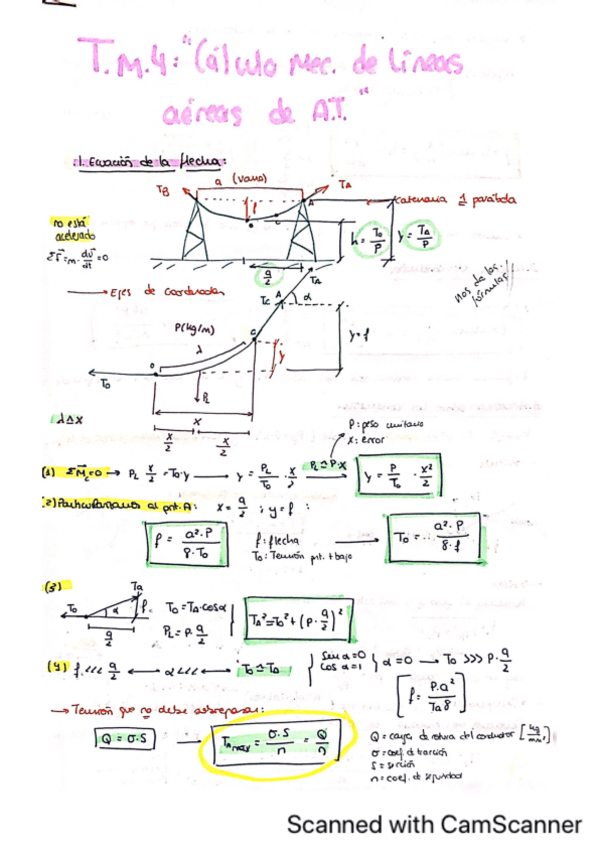 T.M.4: "Cálculo Mec. de líneas
aéreas de A.T."
1. Ecuación de la flecha:
a (vano)
TB
TA
f
A
catenaria ≃ parábola
no está
acelerado
ΣF = m · dv/dt = 0
h = To/P
y = TA/P
a/2
→ Ejes de coordenadas
nos da las fórmulas
TA
Tc
A
α
P(kg/m)
λ
C
y
y=f
To
O
PL
λ≃x
x
x/2
x/2
P: peso unitario
x: error
(1) ΣMc=0 → PL · x/2 = To·y → y = PL/To · x/2
PL≃P·x
y = P/To · x²/2
(2) Particularizamos al pnt. A: x = a/2 ; y = f :
f = a²·P / 8·To
f: flecha
To: Tensión pnt. + bajo
To = a²·P / 8·f
(3)
Ta
To
α
f
a/2
To = TA·cosα
PL = P·a/2
TA² = To² + (P·a/2)²
(4) f <<< a/2 ↔ α<<< ↔ To ≃ TA
sen α=0
cos α=1
α=0 → To >>> P·a/2
f = P·a² / TA 8
→ Tensión que no debe sobrepasar:
Q = σ·S
TA max = σ·S/n = Q/n
Q = carga de rotura del conductor [kg/mm²]
σ = coef. de tracción
S = sección
n = coef. de seguridad
Scanned with CamScanner